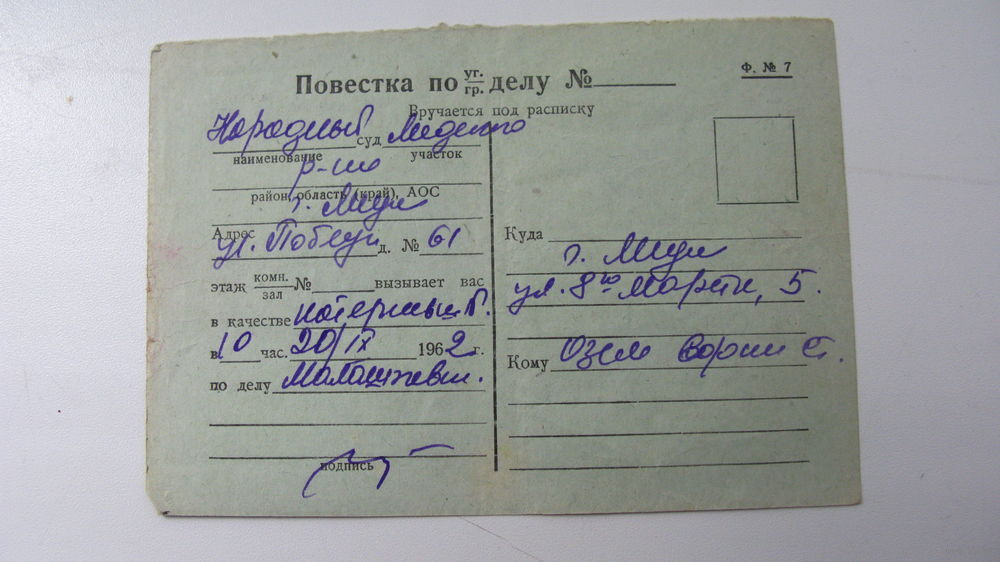 Ф. № 7
Повестка по уг./гр. делу №
Вручается под расписку
Народный суд Лидского
наименование участок
р-на
район, область (край), АОС
г. Лида
Адрес
ул. Победы д. № 61
этаж комн./зал № вызывает вас
в качестве потерпевш.
в 10 час. 20/IX 1962 г.
по делу
подпись
Куда
г. Лида
ул. 8го Марта, 5.
Кому